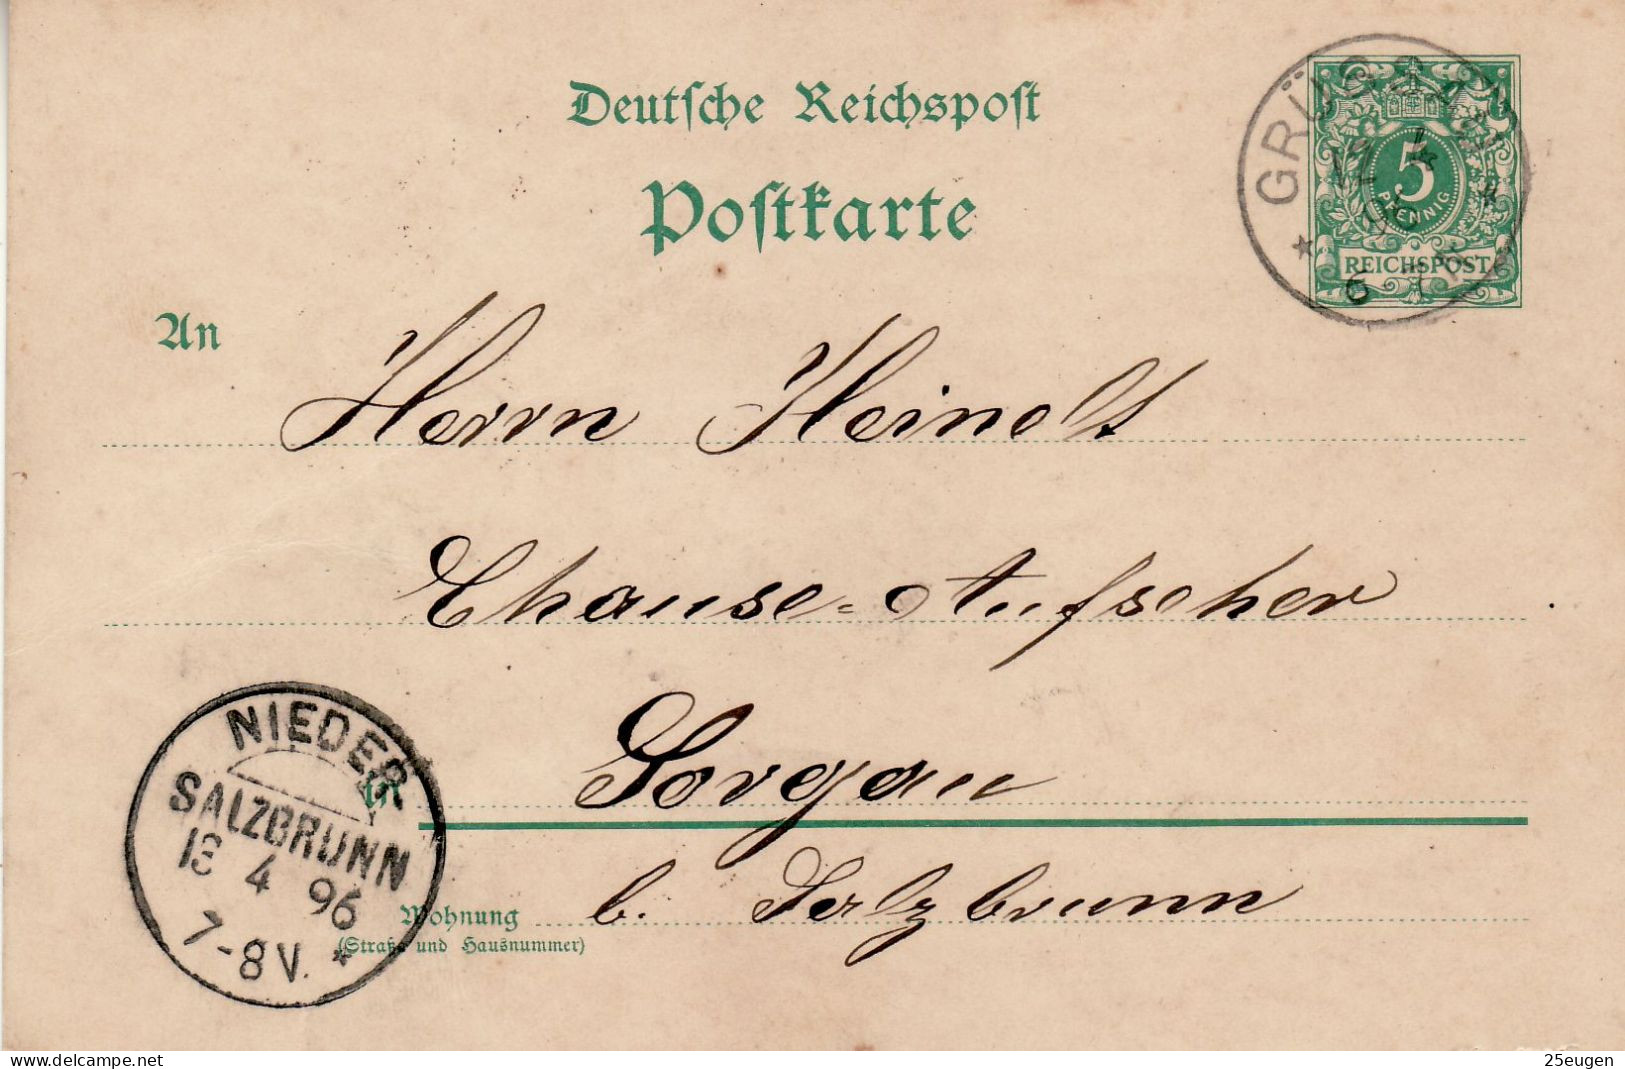 Deutsche Reichspost
Postkarte
5
PFENNIG
REICHSPOST
An
Herrn Heinelt
Chause-Aufseher
in Sorgau
b. Salzbrunn
Wohnung
(Straße und Hausnummer)
NIEDER-
SALZBRUNN
13 4 96
7-8 V. *
www.delcampe.net
25eugen